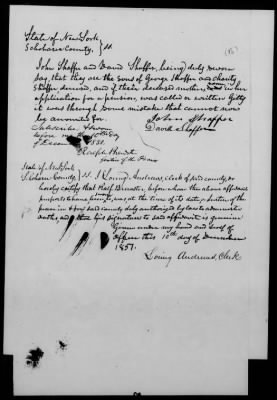 State of New York
Schoharie County, } ss.
John Shaffer and David Shaffer, being duly sworn
say, that they are the sons of George Shaffer and Charity
Shaffer deceased, and if their deceased mother, in her
application for a pension, was called or written Gitty
it was through some mistake that cannot now
be accounted for.
John Shaffer
David Shaffer
Subscribed & sworn
before me this 10th day
of Decem 1851.
Ralph Brewster
Justice of the Peace
State of New York
Schoharie County, } ss. I Loring Andrews, clerk of said county, do
hereby certify that Ralph Brewster, before whom the above affidavit
purports to have been, was, at the time of its date, a Justice of the
peace in & for said county duly authorized by law to administer
oaths, and that his signature to said affidavit is genuine
Given under my hand and seal of
office this 10th day of December
1851.
Loring Andrews, Clerk